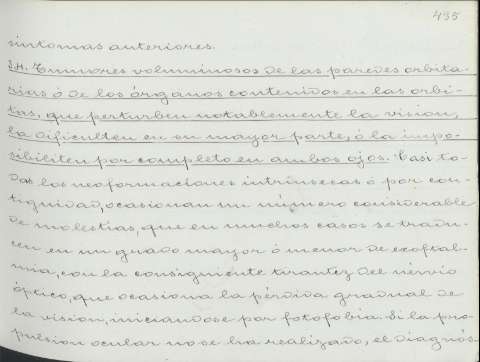 435
sintomas anteriores.
54. Tumores voluminosos de las paredes orbita-
rias ó de los órganos contenidos en las orbi-
tas, que perturben notablemente la vision,
la dificulten en su mayor parte, ó la impo-
sibiliten por completo en ambos ojos. Casi to-
das las neoformaciones intrinsecas ó por con-
tiguidad, ocasionan un número considerable
de molestias, que en muchos casos se tradu-
cen en un grado mayor ó menor de exoftal-
mia, con la consiguiente tirantez del nervio
óptico, que ocasiona la pérdida gradual de
la vision, iniciandose por fotofobia. Si la pro-
pulsion ocular no se ha realizado, el diagnós-